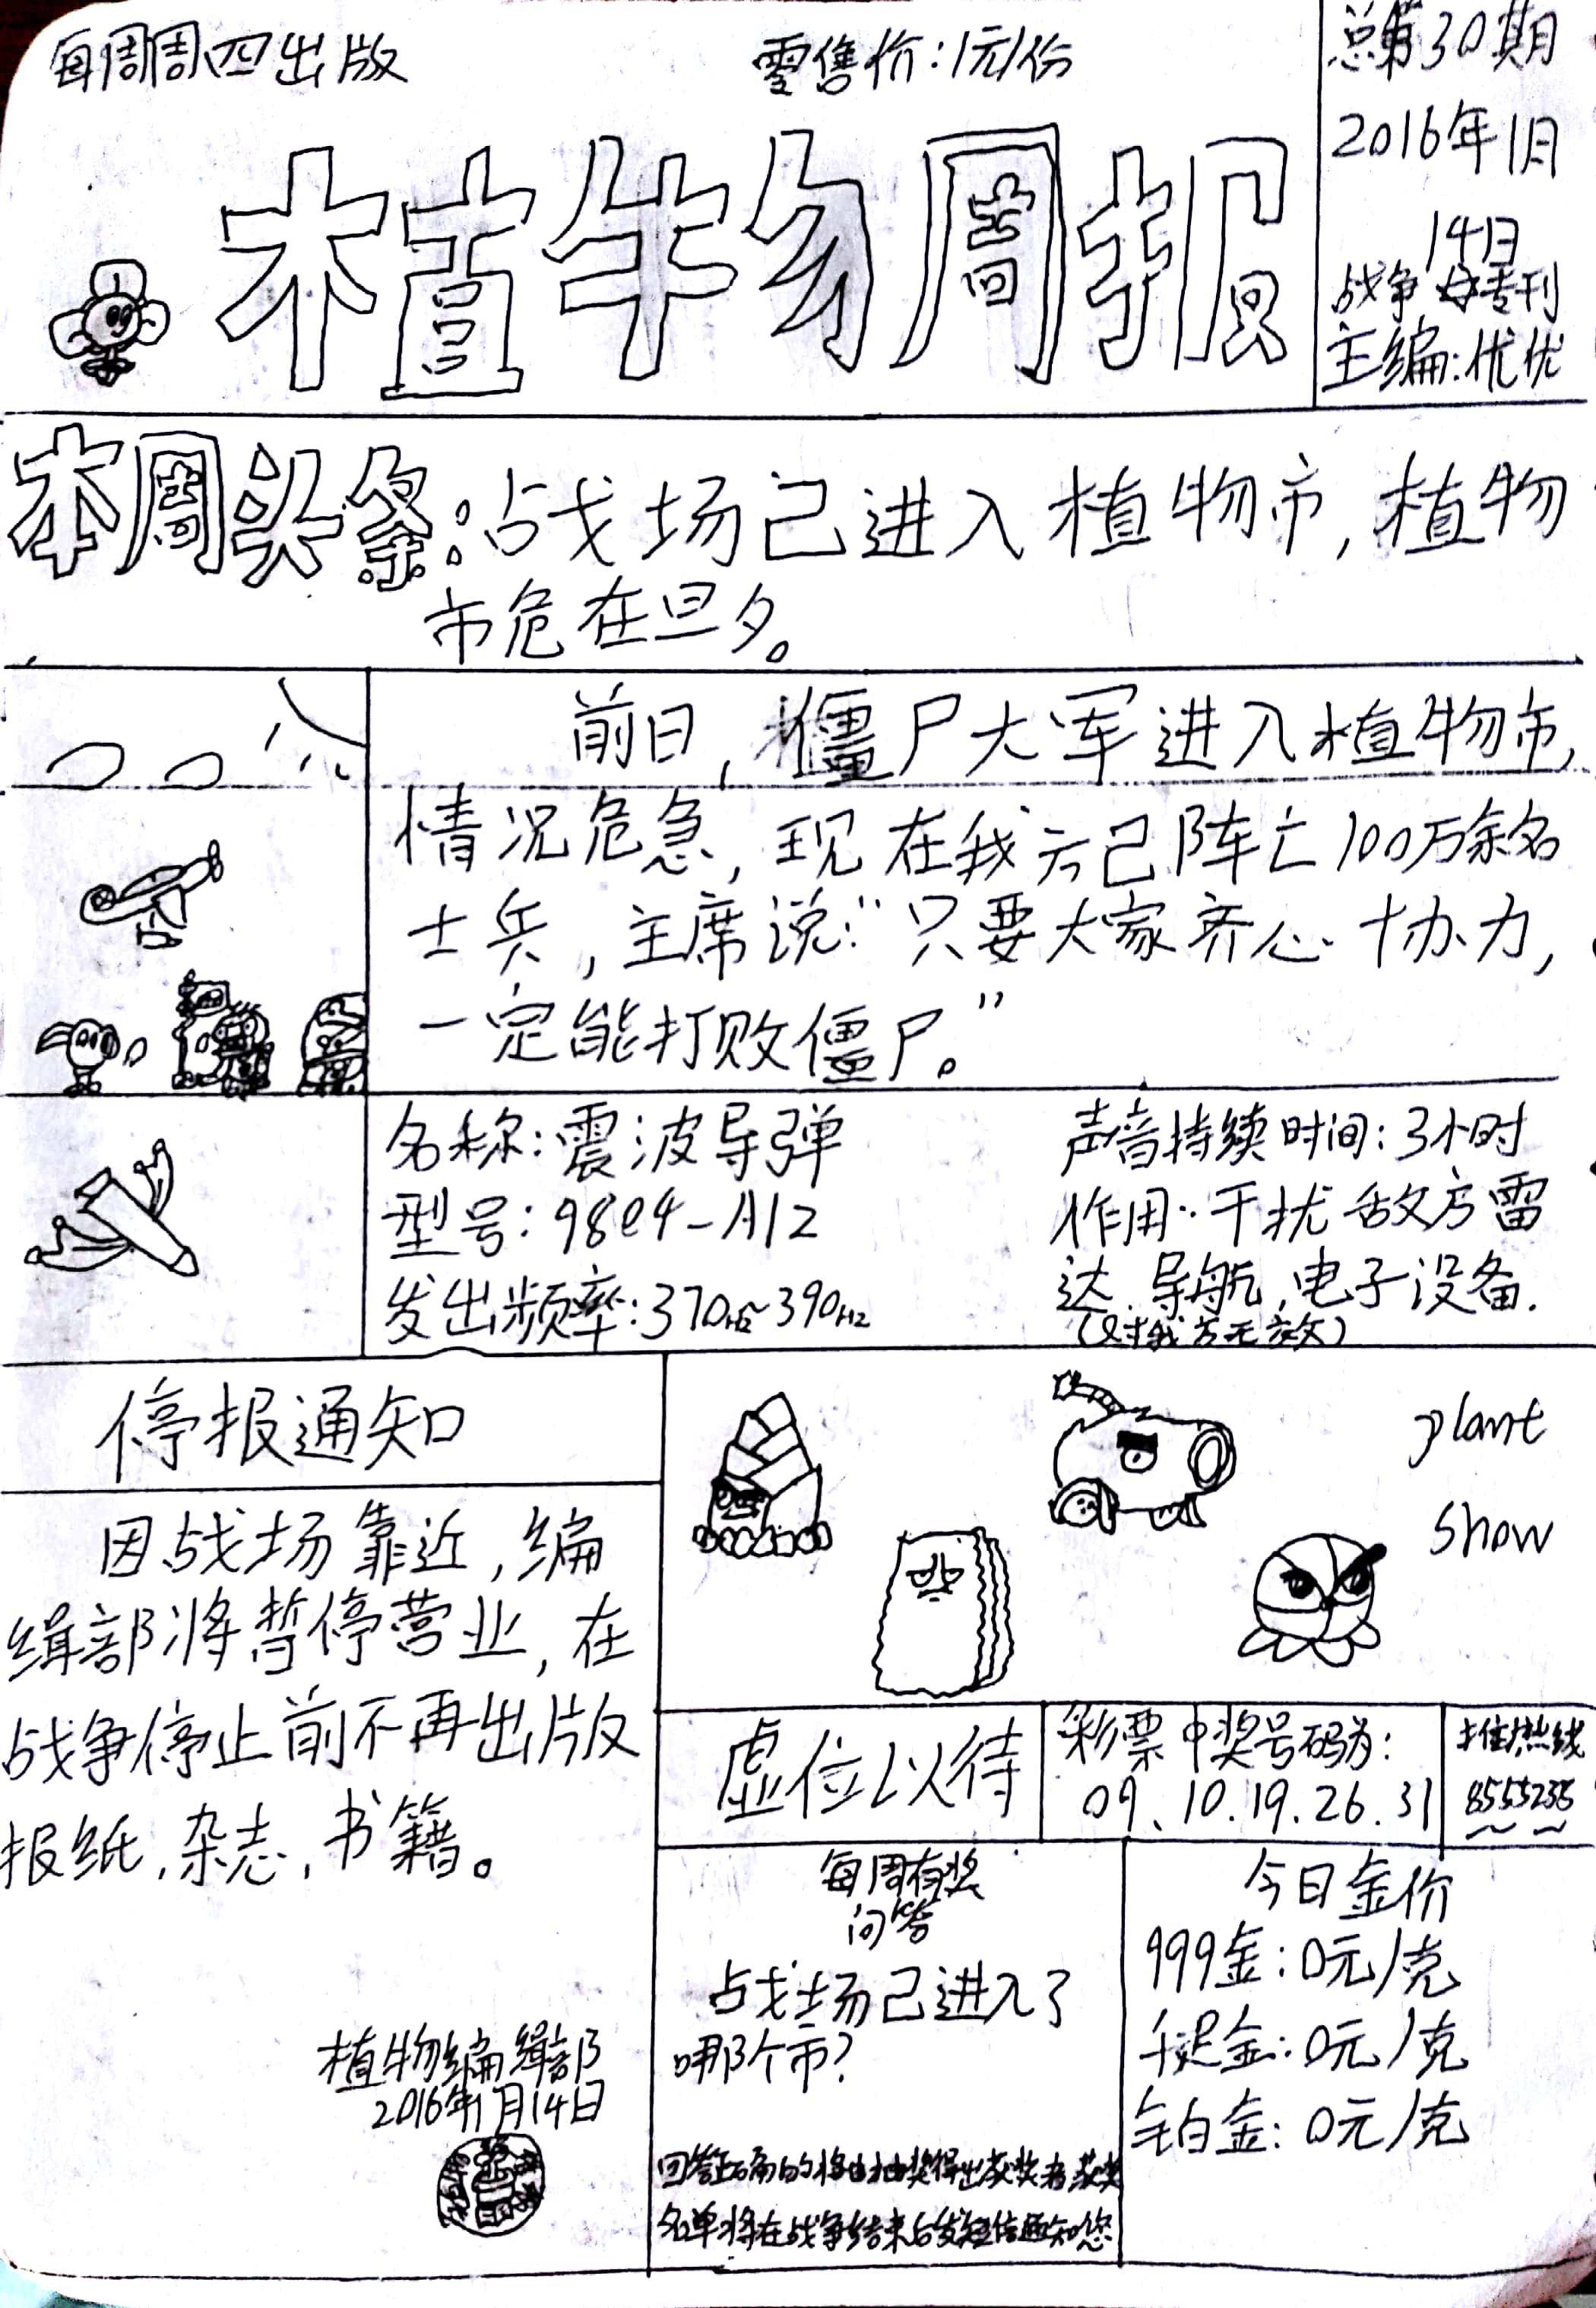 每周周四出版
零售价:1元/份
总第30期
2016年1月
14日
战争专刊
主编:优优
植物周报
本周头条:占戈场己进入植物市,植物
市危在旦夕。
前日,僵尸大军进入植物市,
情况危急,现在我方己阵亡100万余名
士兵,主席说:“只要大家齐心协力,
一定能打败僵尸。”
名称:震波导弹
型号:98e4-A12
发出频率:370Hz~390Hz
声音持续时间:3小时
作用:干扰敌方雷
达.导航,电子设备.
(对我方无效)
停报通知
因战场靠近,编
缉部将暂停营业,在
战争停止前不再出版
报纸,杂志,书籍。
植物编缉部
2016年1月14日
plant
show
虚位以待
彩票中奖号码为:
09、10.19.26.31
热线
8555255
每周有奖
问答
战场己进入了
哪个市?
回答正确的将由抽奖得出获奖者获奖
名单将在战争结束后发短信通知您
今日金价
999金:0元/克
千足金:0元/克
铂金:0元/克